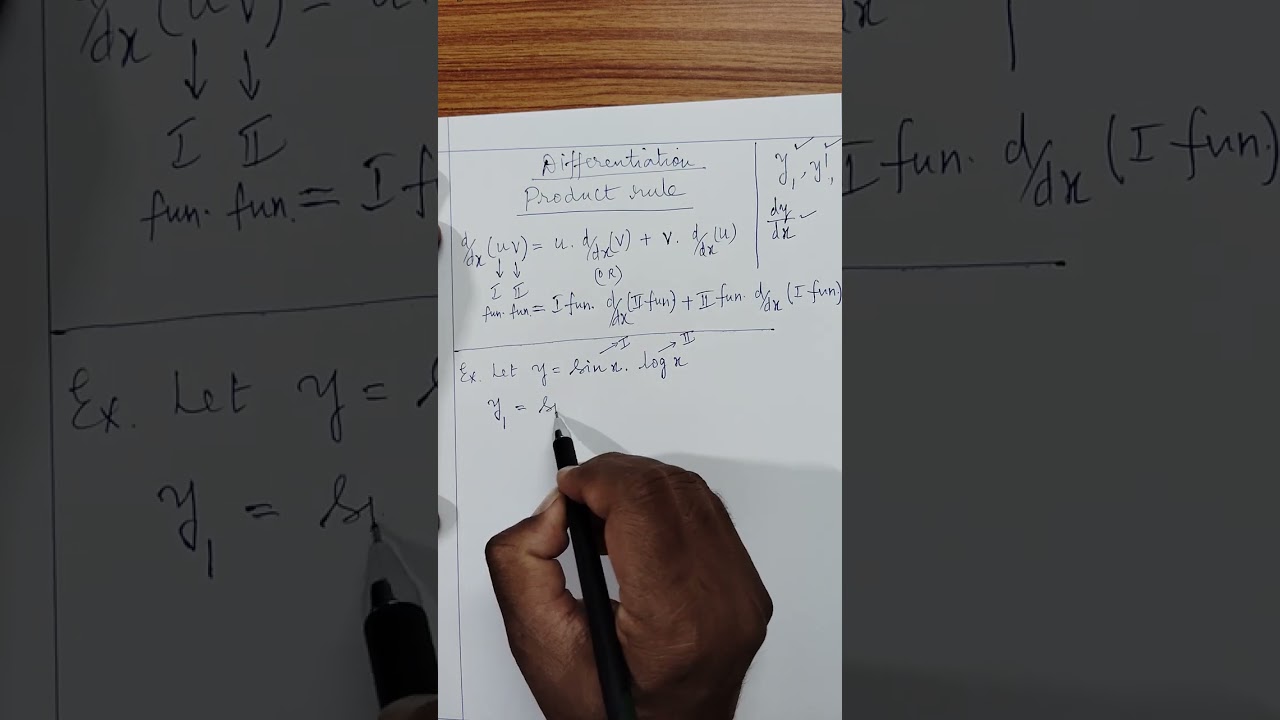 Differentiation
Product rule
y₁, y₁'
dy/dx
d/dx (uv) = u. d/dx (v) + v. d/dx (u)
(OR)
I II
fun. fun. = I fun. d/dx (II fun) + II fun. d/dx (I fun)
Ex. Let y = sin x. log x
I II
y₁ = si